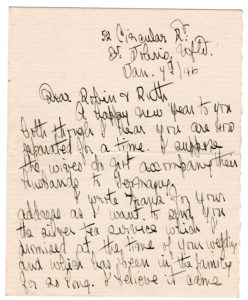 52 Circular Rd.
St. John's, Nfld.
Jan. 9th/46
Dear Robin & Ruth
A happy new year to you
both though I hear you are now
separated for a time. I suppose
the wives do not accompany their
husbands to Germany.
I wrote for your
address as I want to send you
the silver tea service which I
promised at the time of your wedding
and which has been in the family
for so long. I believe it came